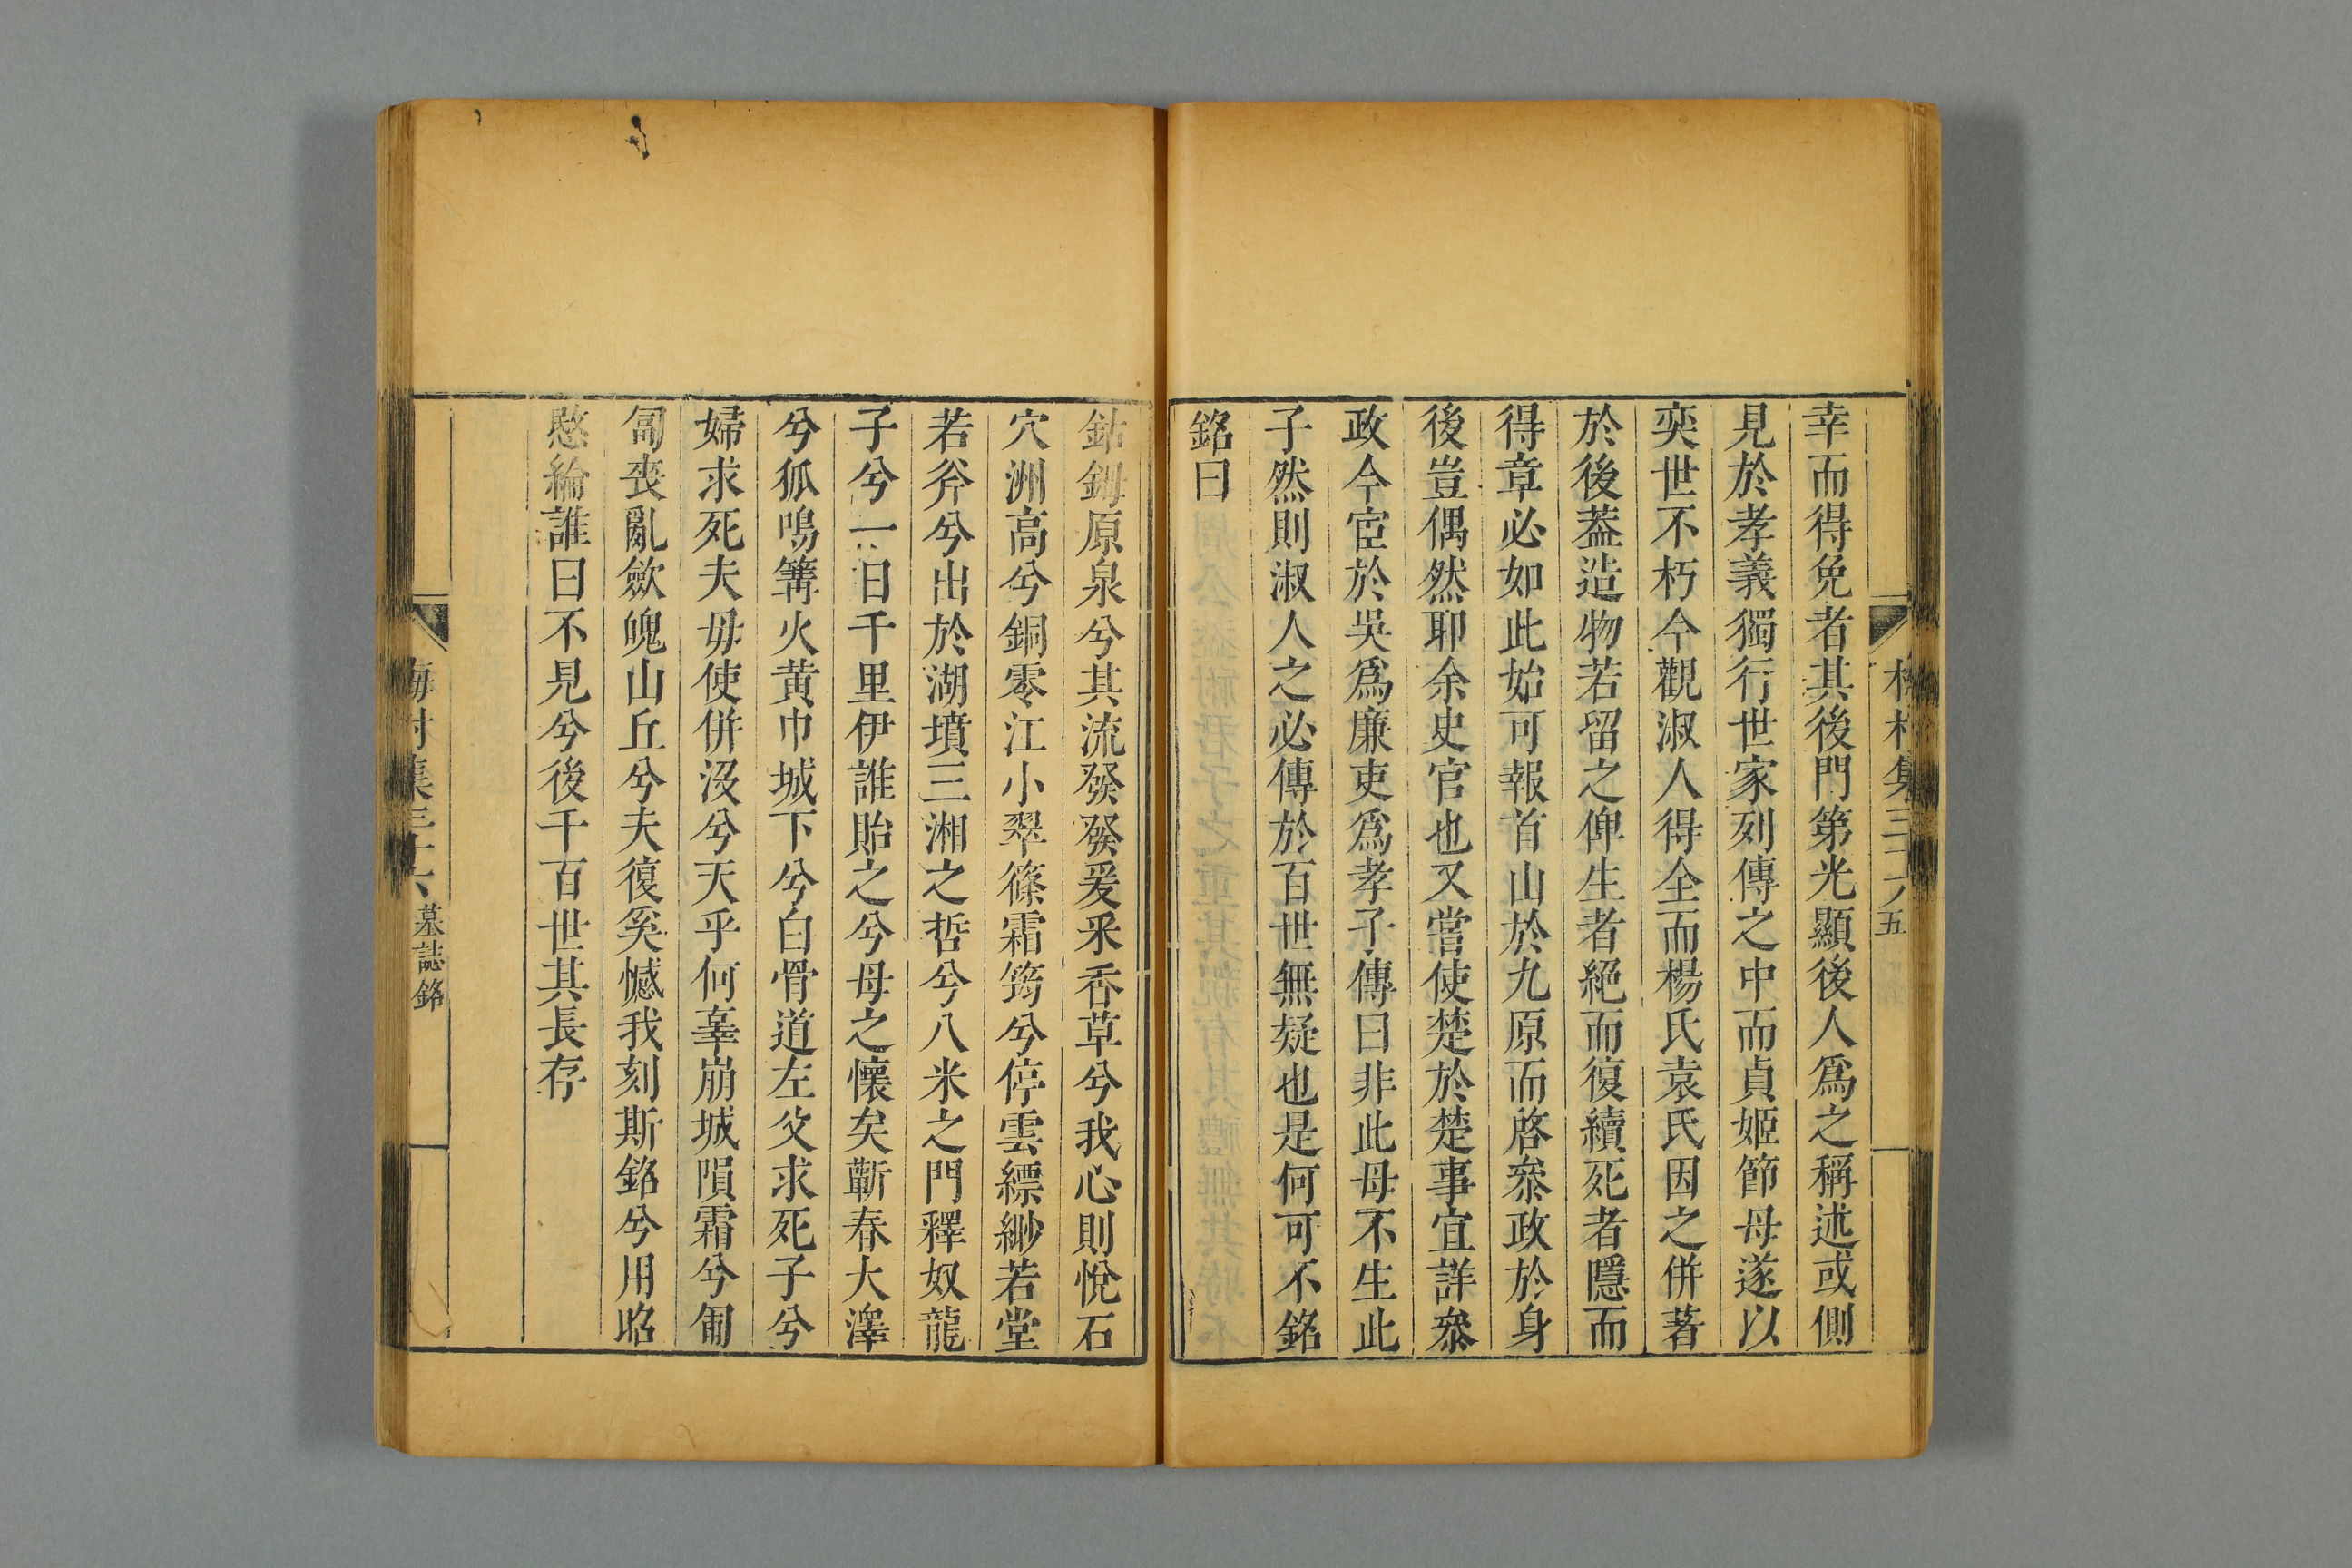 幸而得免者其後門第光顯後人爲之稱述或側
見於孝義獨行世家列傳之中而貞姬節母遂以
奕世不朽今觀淑人得全而楊氏袁氏因之併著
於後葢造物若留之俾生者絕而復續死者隱而
得章必如此始可報首山於九原而啓叅政於身
後豈偶然耶余史官也又嘗使楚於楚事宜詳叅
政今宦於吳爲廉吏爲孝子傳曰非此母不生此
子然則淑人之必傳於百世無疑也是何可不銘
銘曰
鈷鉧原泉兮其流發發爰采香草兮我心則悅石
穴洲高兮銅零江小翠篠霜筠兮停雲縹緲若堂
若斧兮出於湖墳三湘之哲兮八米之門釋奴龍
子兮一日千里伊誰貽之兮母之懷矣蘄春大澤
兮狐鳴篝火黃巾城下兮白骨道左父求死子兮
婦求死夫毋使併沒兮天乎何辜崩城隕霜兮匍
匐喪亂歛魄山丘兮夫復奚憾我刻斯銘兮用昭
愍綸誰曰不見兮後千百世其長存
梅村集三十六 墓誌銘